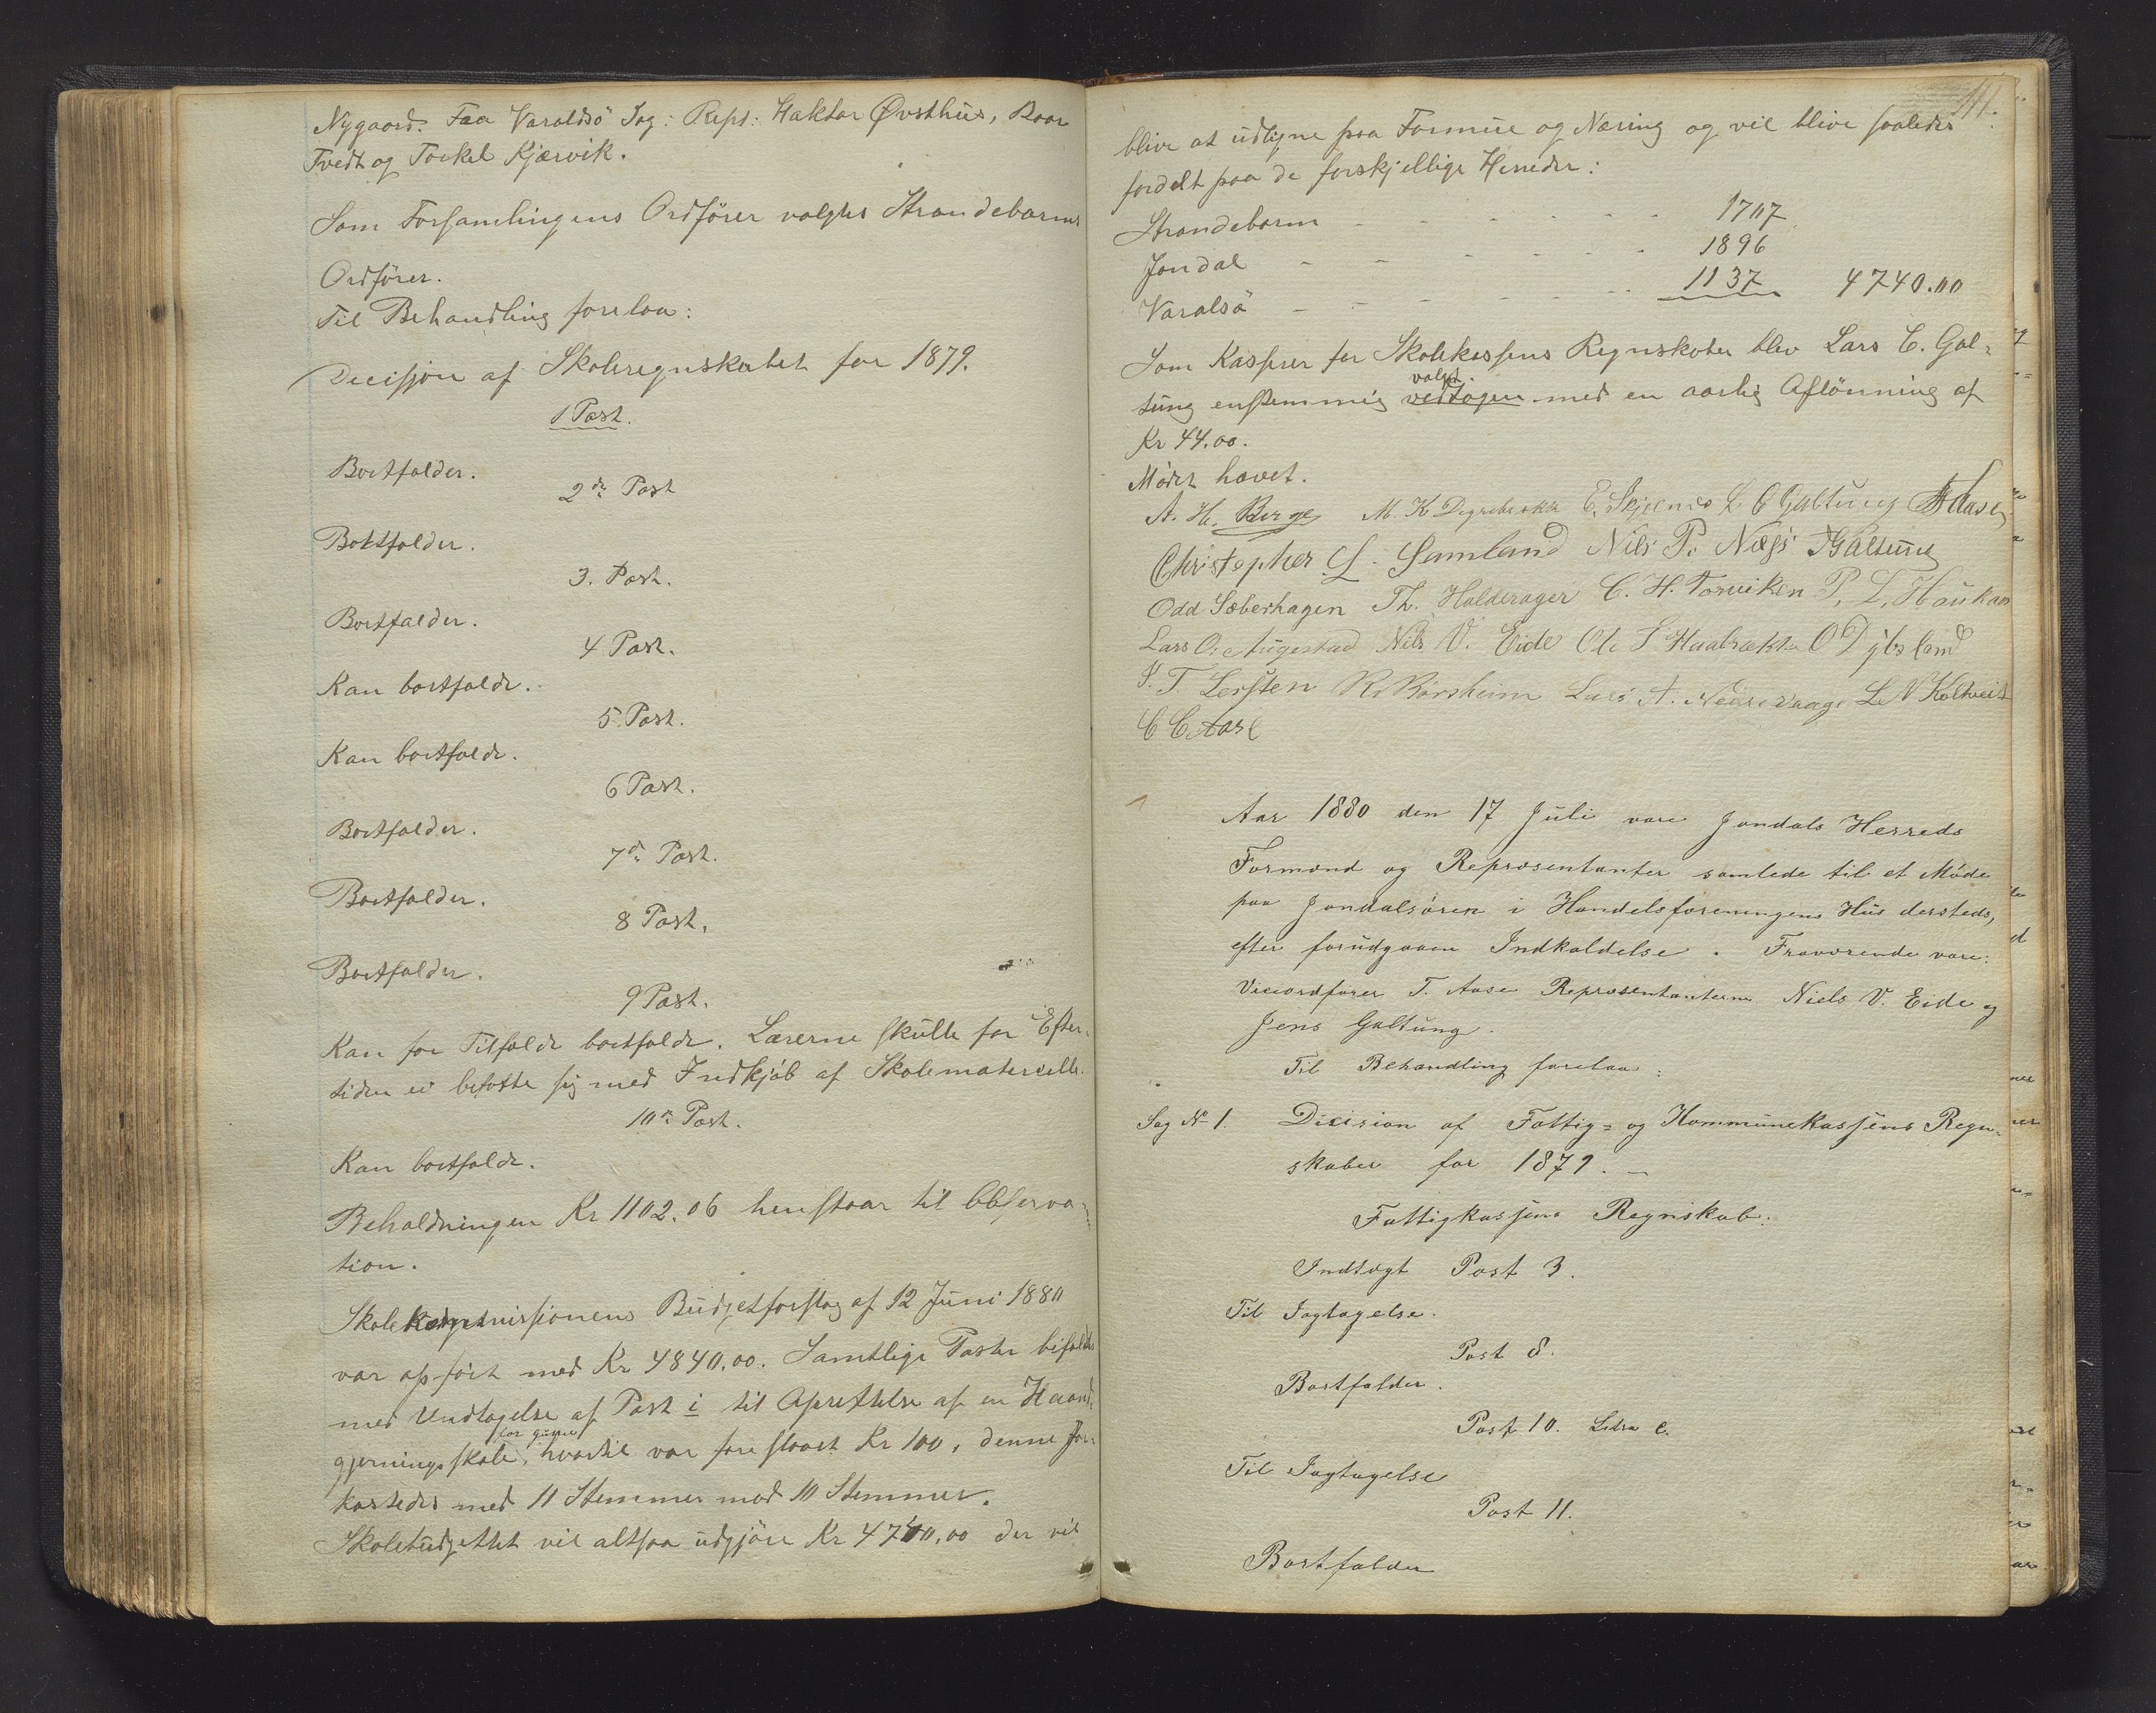 Nygaard. Fra Varaldsö Sog: Repr: Haktor Øvsthus, Baar
Tvedt og Torkel Kjærvik.
Som Forsamlingens Ordfører valgtes Strandebarms
Ordfører.
Til Behandling forelaa:
Decisjon af Skoleregnskabet for 1879.
1 Post.
Bortfalder.
2de Post
Bortfalder.
3. Post.
Bortfalder.
4 Post.
Kan bortfalde.
5. Post.
Kan bortfalde.
6 Post.
Bortfalder.
7de Post.
Bortfalder.
8 Post.
Bortfalder.
9 Post.
Kan for Tilfælde bortfalde. Lærerne skulle for Efter-
tiden ei befatte sig med Indkjöb af Skolemateriell.
10de Post.
Kan bortfalde.
Beholdningen Kr 1102.06 henstaar til Observa-
tion.
Skolekommissionens Budjetforslag af 12 Juni 1880
var opfört med Kr 4840.00. Samtlige Poster bifaldes
med Undtagelse af Post i til Oprettelse af en Haand-
gjerningsskole, for hvortil var foreslaaet Kr 100, denne for-
kastedes med 11 Stemmer mod 10 Stemmer.
Skolebudgettet vil altsaa udgjöre Kr 4740,00 der vil
111.
blive at udligne paa Formue og Næring og vil blive saaledes
fordelt paa de forskjellige Herreder:
Strandebarm - - - - - 1707
Jondal - - - - - 1896
Varalsö - - - - - 1137 4740.00
Som Kasserer for Skolekassens Regnskaber blev Lars C. Gal-
tung enstemmig vedtagen valgt. med en aarlig Aflönning af
Kr 44.00.
Mödet hævet.
A. H. Berge M. K Digrebrekke E. Skjelnes L C Galtung T Aase
Christopher L. Samland Nils P. Næss J Galtung
Odd Sæberhagen Th. Halderager C. H. Torviken P. L. Haukaas
Lars O. Augestad Nils V. Eide Ole S Haabrekke O Dybsland
S. T. Lersten R. Börsheim Lars A. Nedrevaage L N Koltveit
C C Aase
Aar 1880 den 17 Juli vare Jondals Herreds
Formænd og Repræsentanter samlede til et Møde
paa Jondalsøren i Handelsforeningens Hus dersteds,
efter forudgaaen Indkaldelse. Fraværende vare:
Viceordfører T. Aase Repræsentanterne Niels V. Eide og
Jens Galtung.
Til Behandling forelaa:
Sag No 1. Dicision af Fattig- og Kommunekassens Regn-
skaber for 1879. -
Fattigkassens Regnskab:
Indtægt Post 3.
Til Iagtagelse.
Post 8.
Bortfalder.
Post 10. Litra c.
Til Iagtagelse
Post 11.
Bortfalder